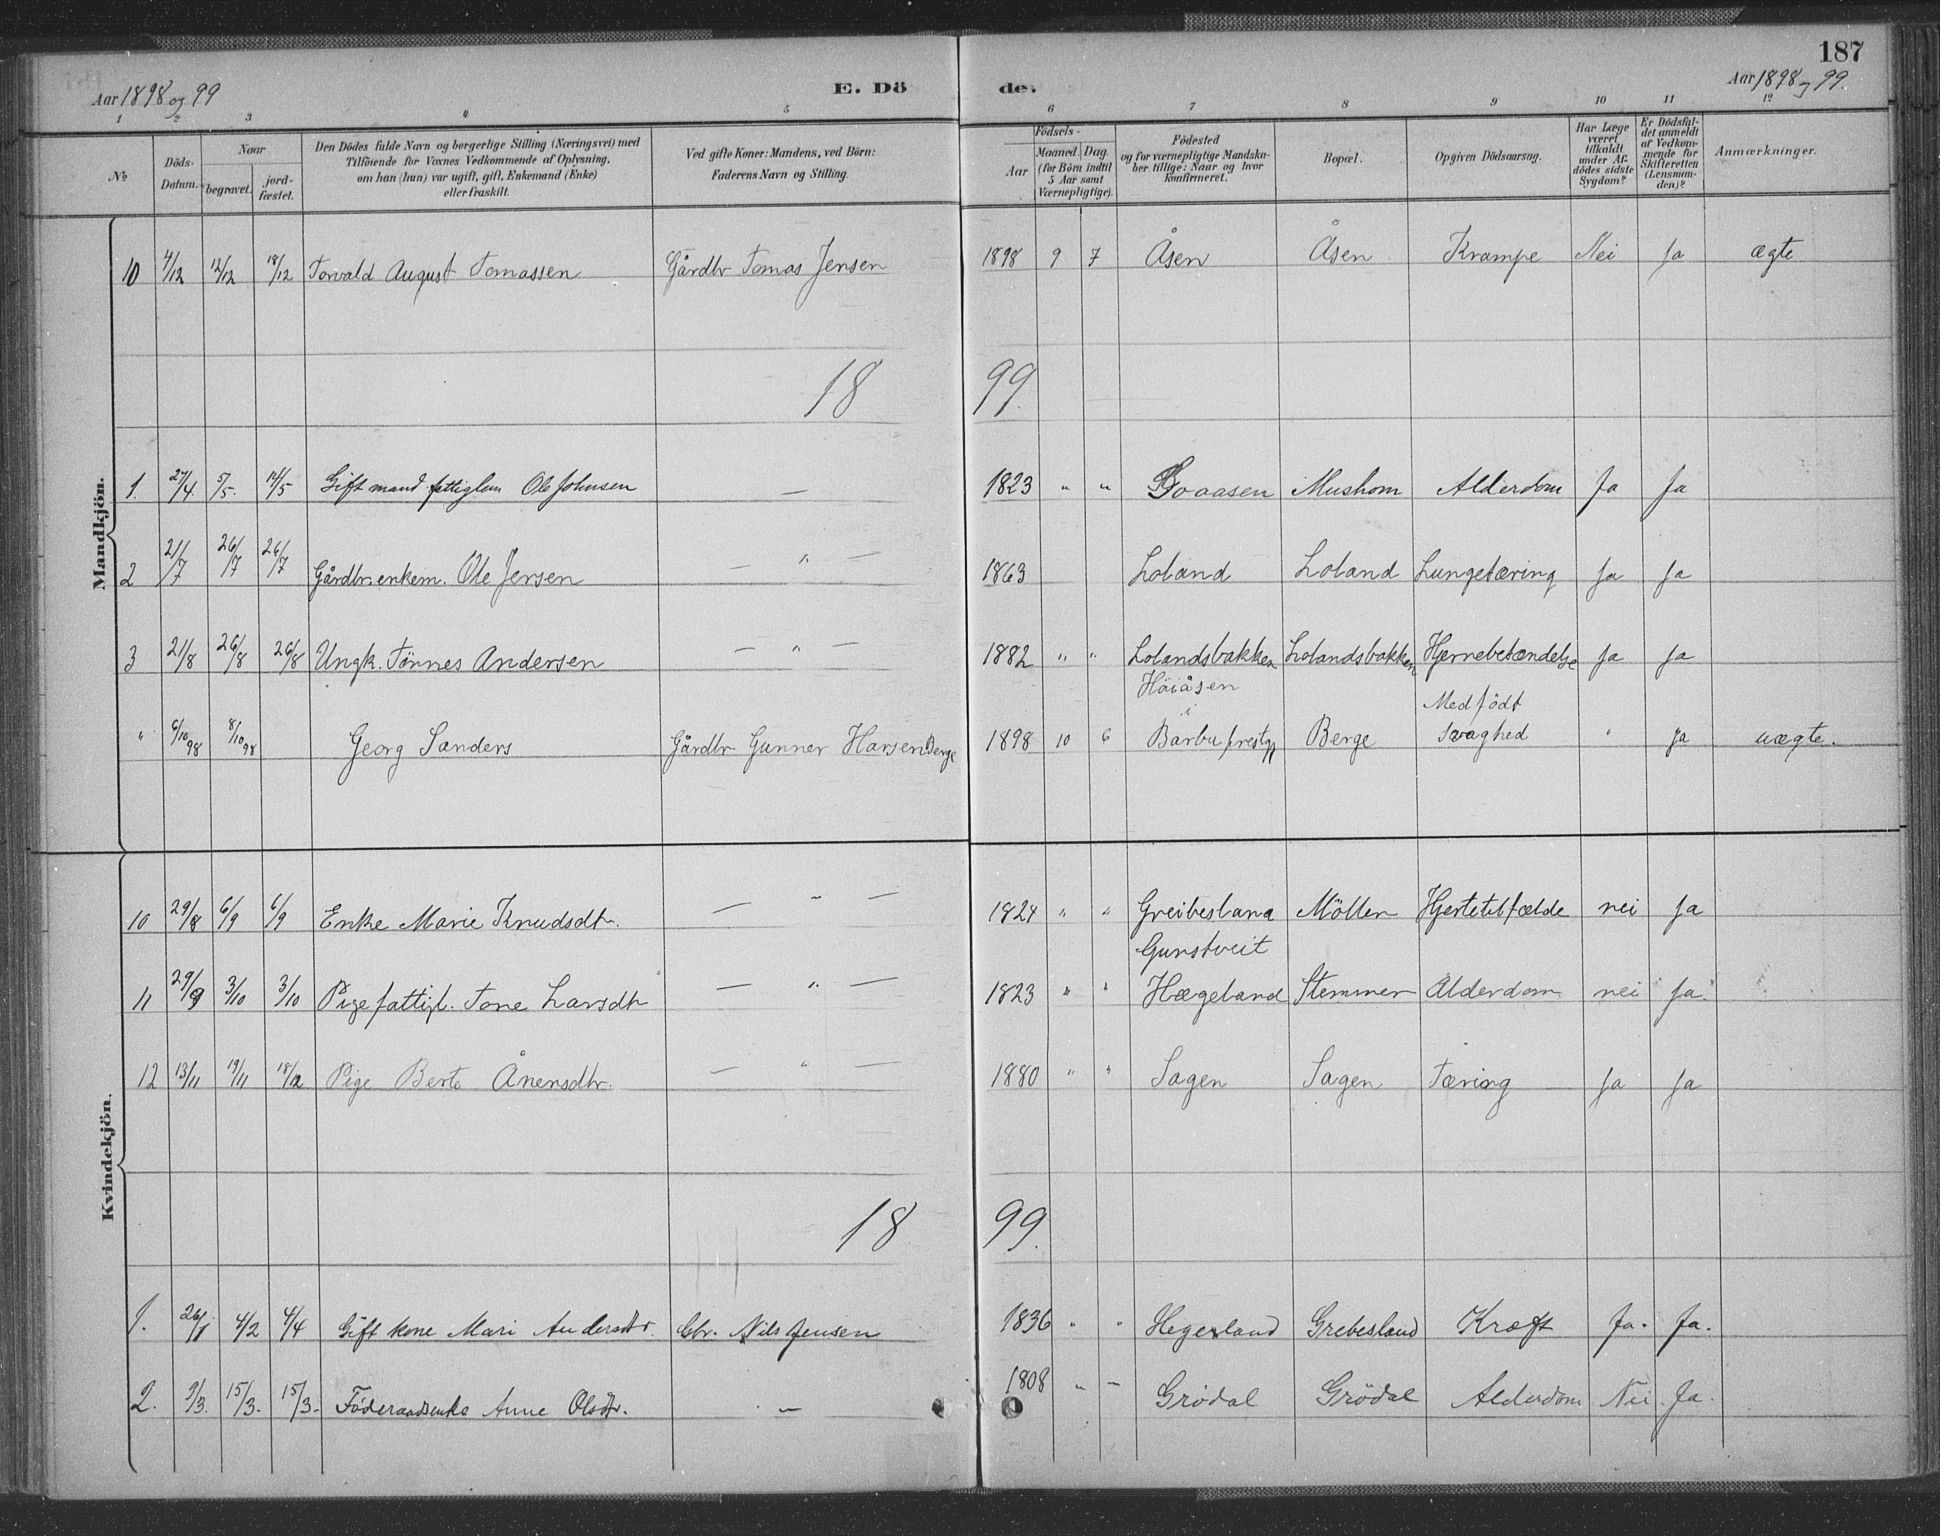 187
Aar 1898 og 99 E. Dö de. Aar 1898 og 99.
1 2 3 4 5 6 7 8 9 10 11 12
No
Döds-Datum.
Naar
begravet.
jord-fæstet.
Den Dödes fulde Navn og borgerlige Stilling (Næringsvei) med
Tilföiende for Voxnes Vedkommende af Oplysning,
om han (hun) var ugift, gift, Enkemand (Enke)
eller fraskilt.
Ved gifte Koner: Mandens, ved Börn:
Faderens Navn og Stilling.
Födsels-
Aar
Maaned. Dag.
(for Börn indtil
5 Aar samt
Værnepligtige).
Födested
og for værnepligtige Mandska-
ber tillige: Naar og hvor
konfirmeret.
Bopæl.
Opgiven Dödsaarsag.
Har Læge
været
tilkaldt
under Af-
dödes sidste
Sygdom?
Er Dödsfal-
det anmeldt
af Vedkom-
mende for
Skifteretten
(Lensman-
den)?
Anmærkninger.
Mandkjön.
10 4/12 12/12 18/12 Torvald August Tomassen Gårdbr Tomas Jensen 1898 9 7 Åsen Åsen Krampe Nei Ja ægte
18 99.
1. 27/4. 5/5. 14/5 Gift mand fattiglem Ole Johnsen — 1823 " " Goaasen Mushom Alderdom Ja Ja
2 21/7 26/7 26/7 Gårdbr. enkem. Ole Jensen — " — 1863 Loland Loland Lungetæring Ja Ja
3 21/8 26/8 26/8 Ungk. Tönnes Andersen — " — 1882 " " Lolandsbakken Lolandsbakken Hjernebetændelse Ja Ja
Höiåsen i Medfödt
" 6/10 98 8/10 98 Georg Sanders Gårdbr Gunner Hansen Berge 1898 10 6 Barbu prestgj Berge Svaghed " Ja uægte.
Kvindekjön.
10 29/8 6/9 6/9 Enke Marie Knudsdtr. — " — 1824 " " Greibesland Möllen Hjertetilfælde nei Ja
Gunstveit
11 29/9 3/10 3/10 Pige fattigl. Tone Larsdtr — " — 1823 " " Hægeland Stemmen Alderdom nei Ja
12 13/11 19/11 18/12 Pige Berte Ånensdtr. — " — 1880 " " Sagen Sagen Tæring Ja Ja
18 99.
1. 26/1 4/2 4/4 Gift kone Mari Andersdtr. Gbr. Nils Jensen 1836 " " Hegeland Grebesland Kræft Ja. Ja.
2. 9/3. 15/3. 15/3. Föderaadsenke Anne Olsdtr. — 1808 " — Grödal Grödal Alderdom Nei Ja.